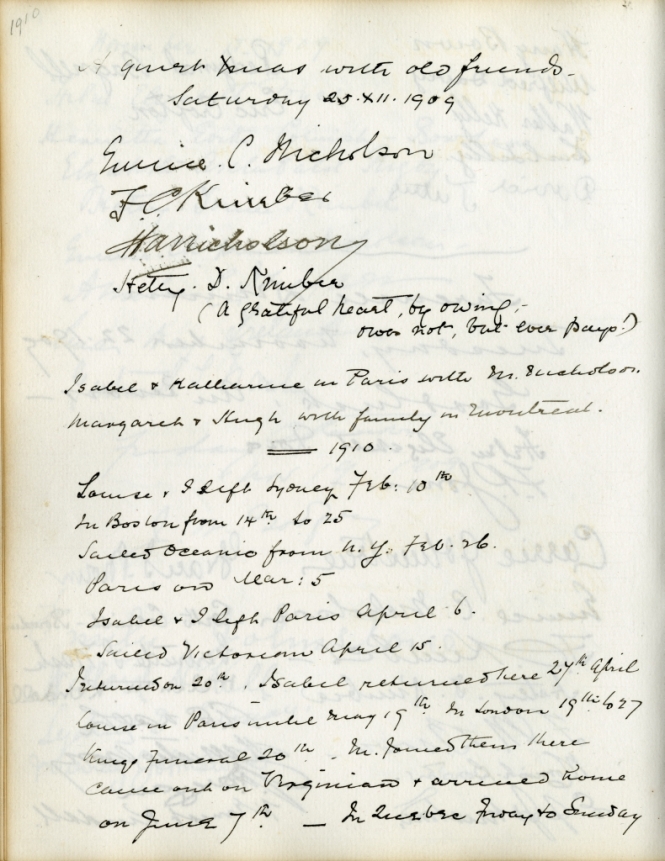 1910
A quiet Xmas with old friends.
Saturday 25.XII.1909
Eunice C. Nicholson
F. C. Kimber
H A Nicholson
Hetty. D. Kimber
(A grateful heart, by owing,
owes not, but ever pays!)
Isabel & Katharine in Paris with M. Nicholson.
Margaret & Hugh with family in Montreal.
1910.
Louise & I left Sydney Feb: 10th
In Boston from 14th to 25
Sailed Oceanic from N.Y. Feb. 26.
Paris on Mar: 5
Isabel & I left Paris April 6.
Sailed Victorian April 15.
I returned on 20th. Isabel returned here 27th April
Louise in Paris until May 19th In London 19th to 27
Kings Funeral 20th. M. joined them there
came out on Virginian & arrived home
on June 7th. — In Quebec Friday to Sunday